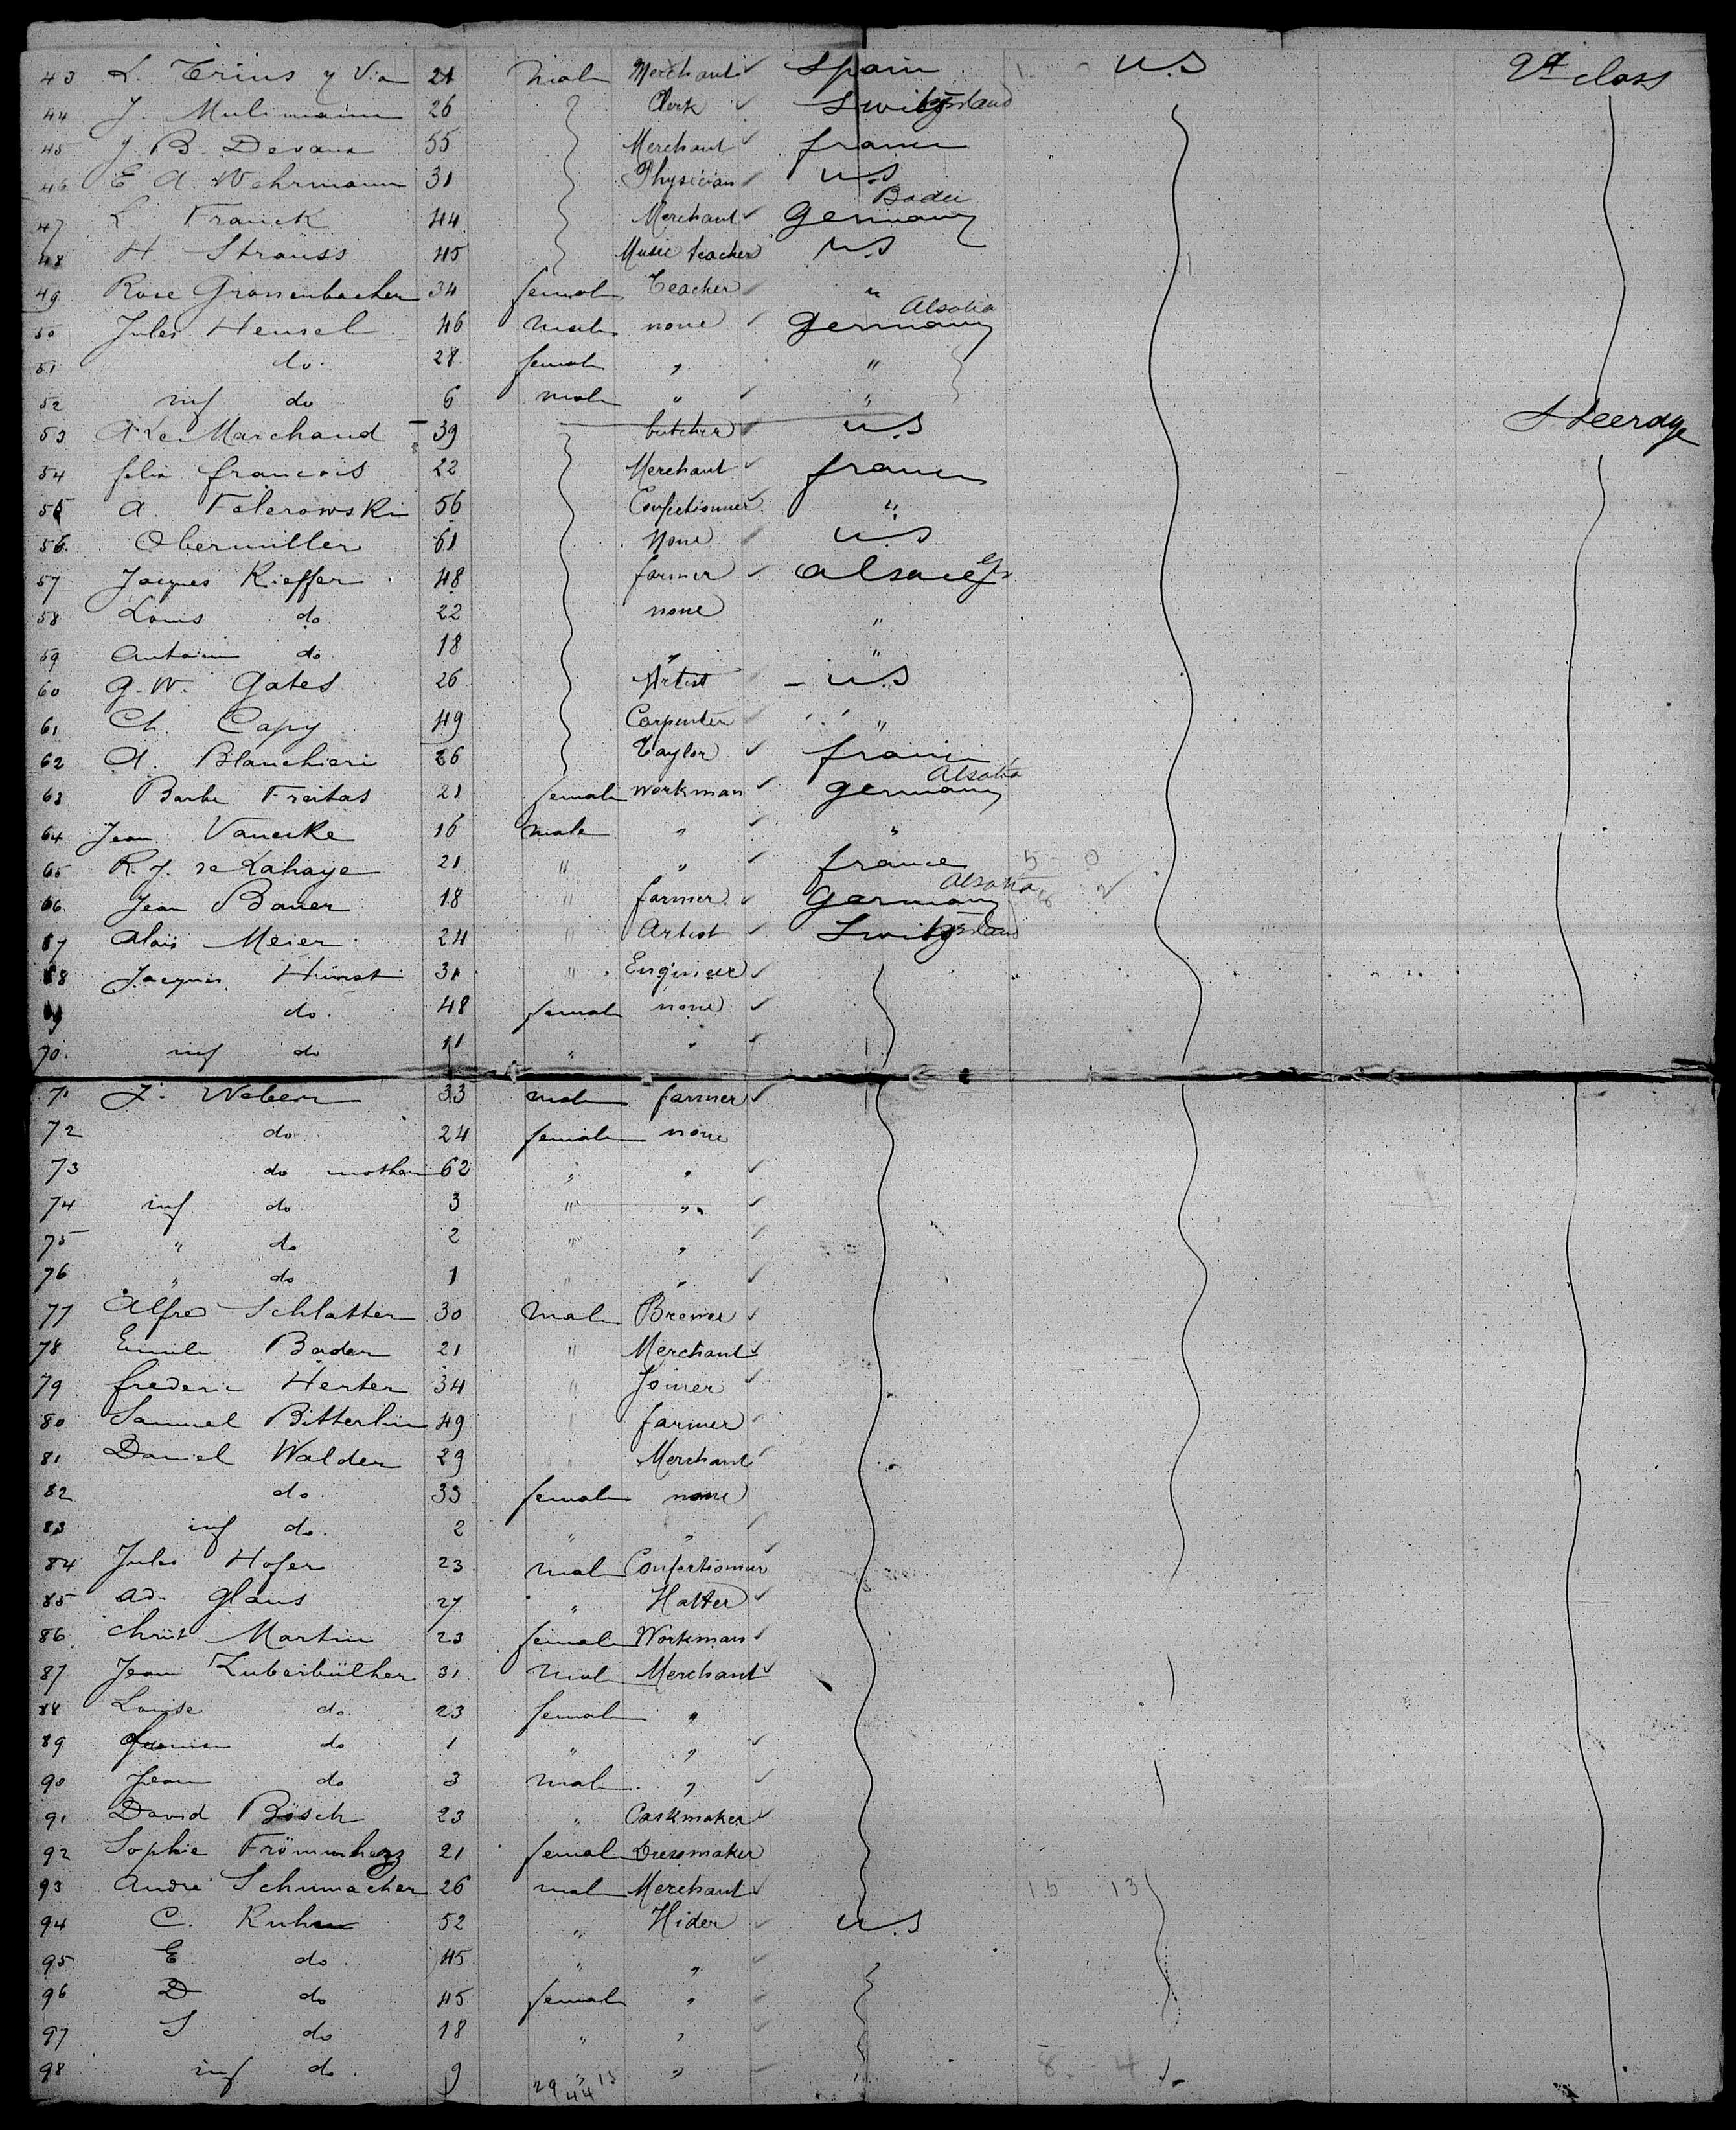 43 L. Trius y Via 21 Male Merchant Spain 1 - U.S 2d class
44 J. Mulimann 26 Clerk Switzerland
45 J B. Devaux 55 Merchant france
46 E A. Wehrmann 31 Physician U.S
47 L. Franck 44 Merchant Germany Baden
48 H. Strauss 45 Music teacher U.S
49 Rose Grossenbacher 34 female Teacher "
50 Jules Hensel 46 Male none Germany Alsatia
51 do. 28 female " "
52 inf do 6 male " "
53 A. Le Marchand 39 butcher U.S Steerage
54 felix francois 22 Merchant france
55 A. Felerowski 56 Confectionner "
56 Obermiller 61 None U.S
57 Jacques Kieffer 48 farmer Alsace Ger
58 Louis do 22 none "
59 Antoine do 18 " "
60 G. W. Gates 26 Artist U.S
61 Ch. Capy 49 Carpenter "
62 A. Blanchieri 26 Taylor france
63 Barbe Freitas 21 female workman Germany Alsatia
64 Jean Vanecke 16 male " "
65 R. J. de Lahaye 21 " " france 5 - 0
66 Jean Bauer 18 " farmer Germany Alsatia
67 Alois Meier 24 " Artist Switzerland
68 Jacques Hürst 31 " Engineer
69 do. 48 female none
70. inf do 11 " "
71 J. Weber 33 male farmer
72 do 24 female none
73 do mother 62 " "
74 inf do 3 " "
75 " do 2 " "
76 " do 1 " "
77 Alfred Schlatter 30 Male Brewer
78 Emile Bader 21 " Merchant
79 frederic Herter 34 " Joiner
80 Samuel Bitterlin 49 " farmer
81 Daniel Walder 29 " Merchant
82 do. 33 female none
83 inf do. 2 " "
84 Jules Hofer 23 male Confectionner
85 Ad. Glaus 27 " Hatter
86 Christ Martin 23 female Workman
87 Jean Zuberbülher 31 Male Merchant
88 Louise do. 23 female "
89 do 1 " "
90 Jean do 3 Male "
91 David Bösch 23 " Caskmaker
92 Sophie Frömmherz 21 female Dressmaker
93 André Schumacher 26 male Merchant 15 13
94 C. Kuhn 52 " Hider U.S
95 E do. 45 " "
96 D do 45 female "
97 S do 18 " "
98 inf do. 9 " " 8 - 4
29 44 15